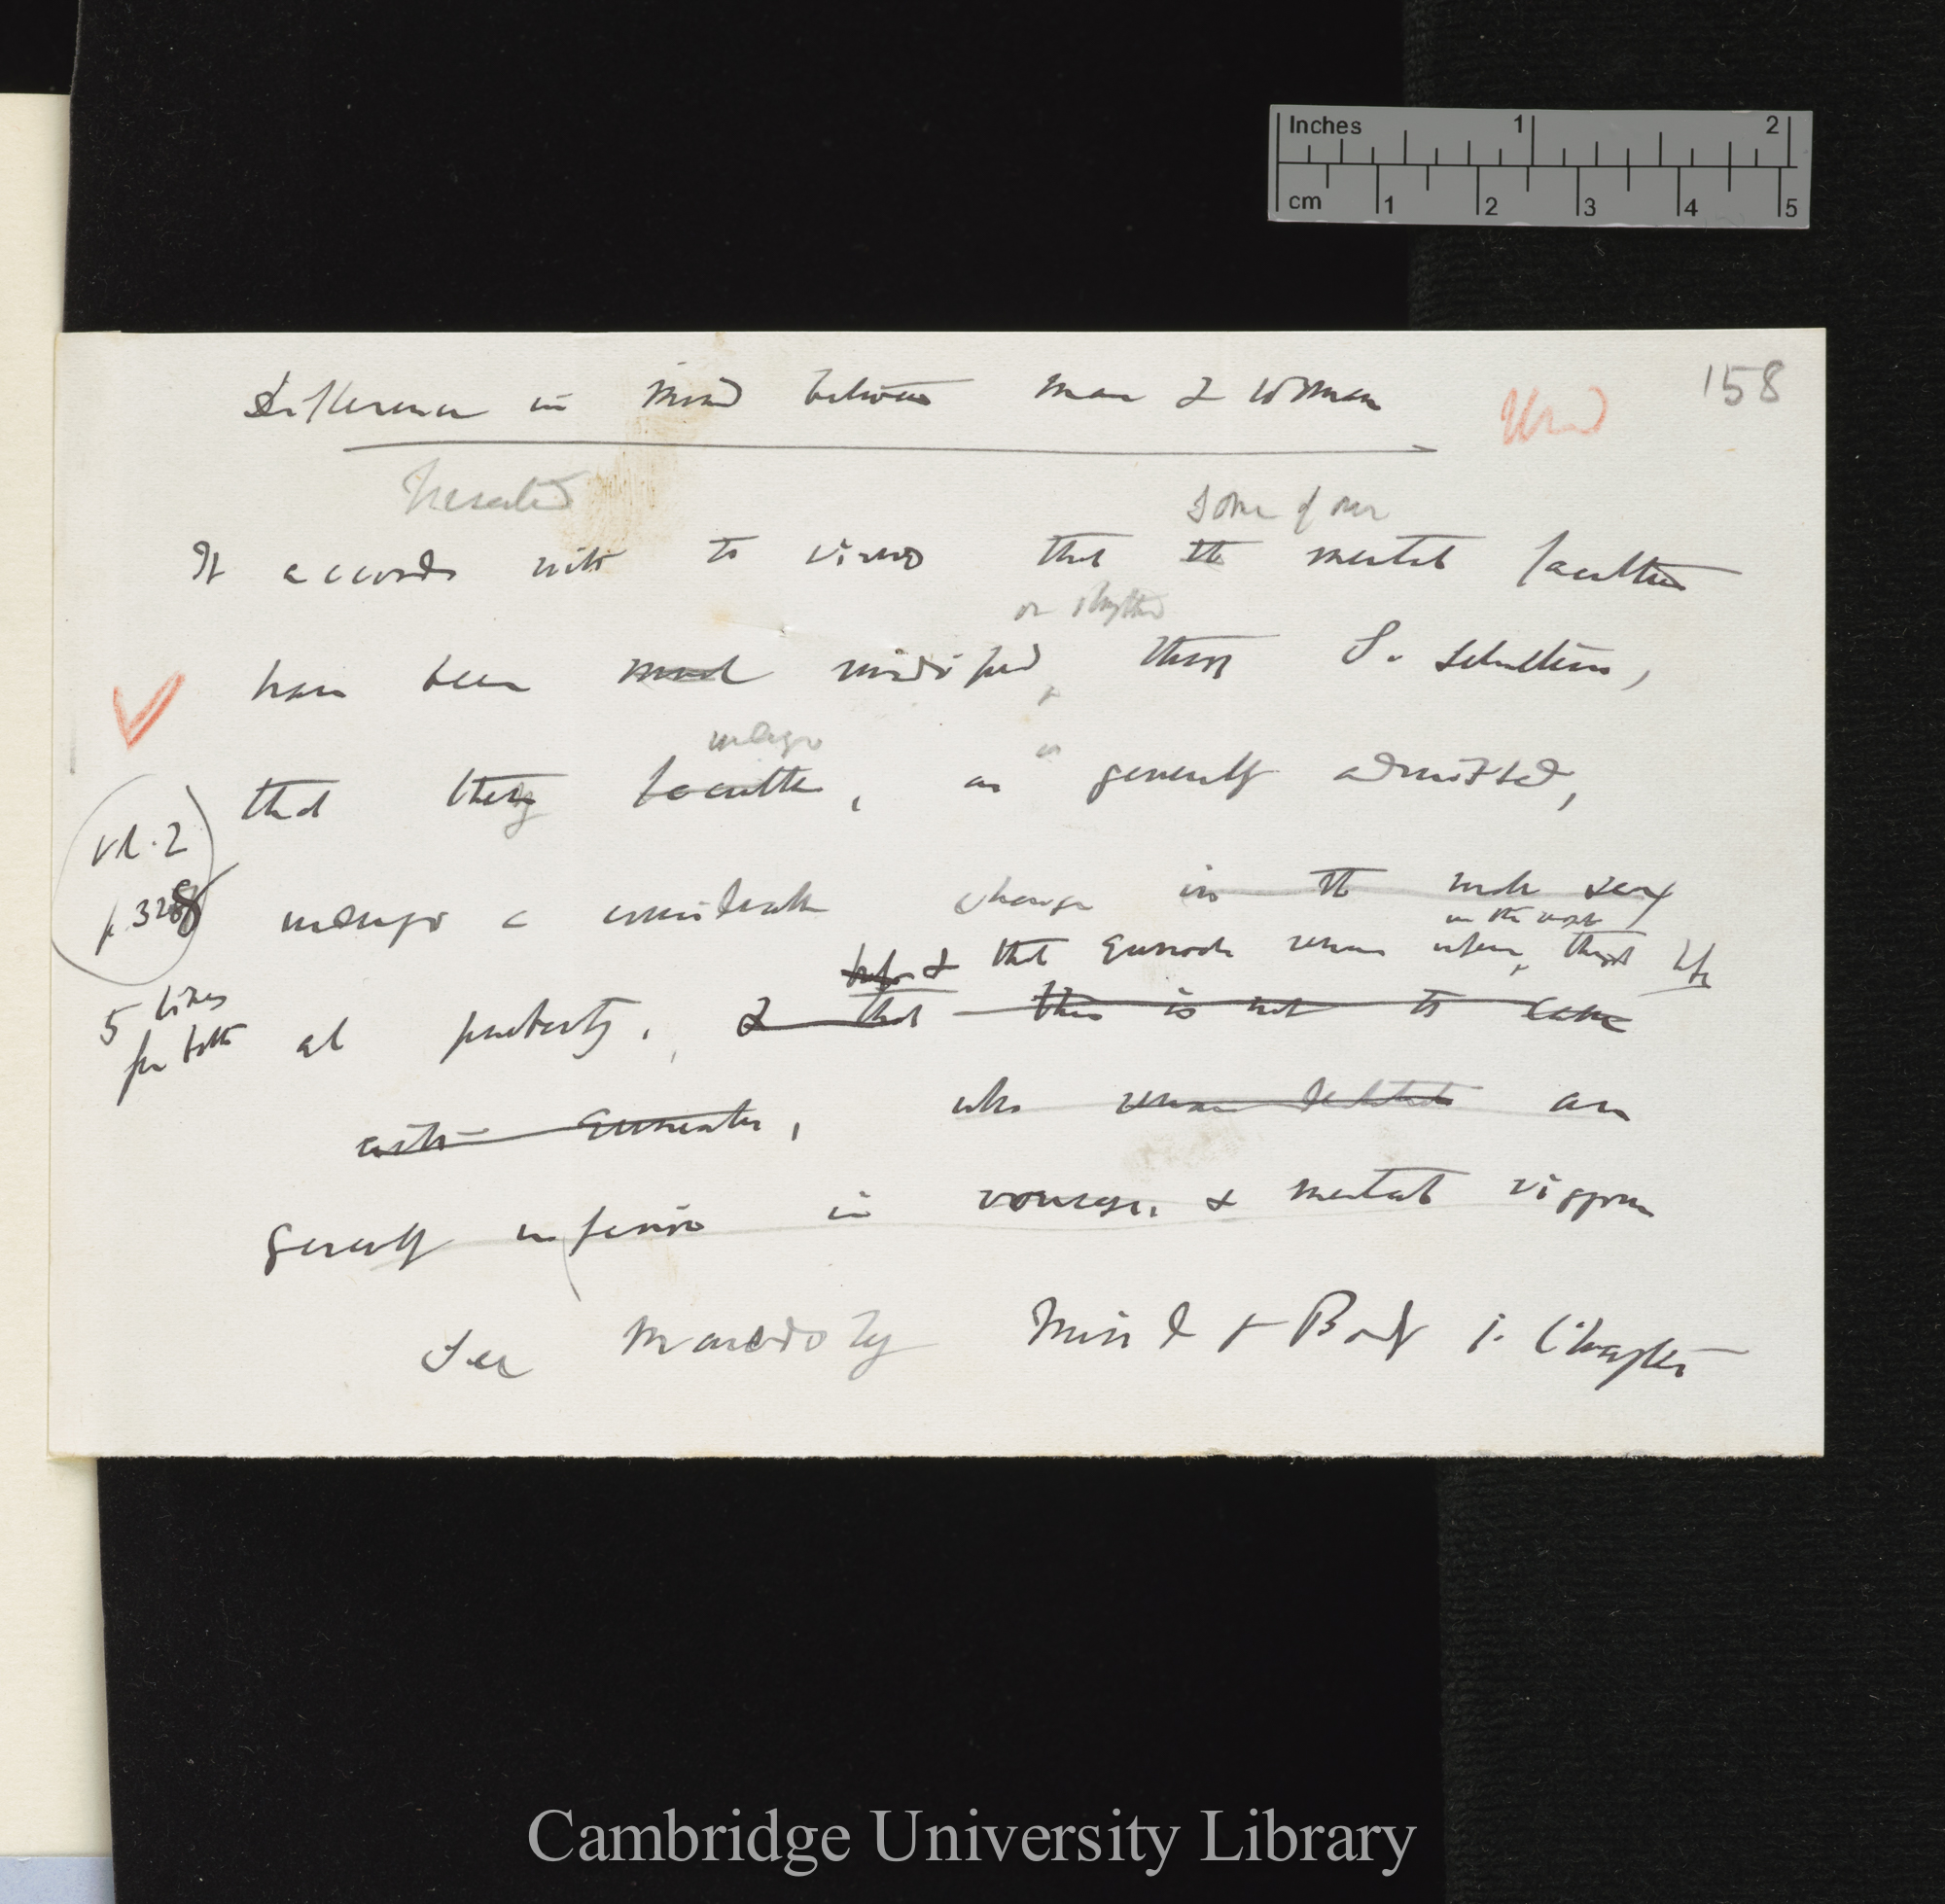 Inches 1 2
cm 1 2 3 4 5
158
Difference in Mind between Man & Woman
Used
Inserted
some of our
It accords with the view that the mental faculties
or slightly
have been much modified, through S. selection,
undergo
that they faculties, as is generally admitted,
vol. 2
p. 328
undergo a considerable change in the male sex
in the next
before & that Eunuchs remain inferior, through life
5 lines
for both
at puberty, & that this is not the case
with Eunuchs, who remain are
generally inferior in courage, & mental vigour
See Maudsley Mind & Body 1. Chapter
Cambridge University Library